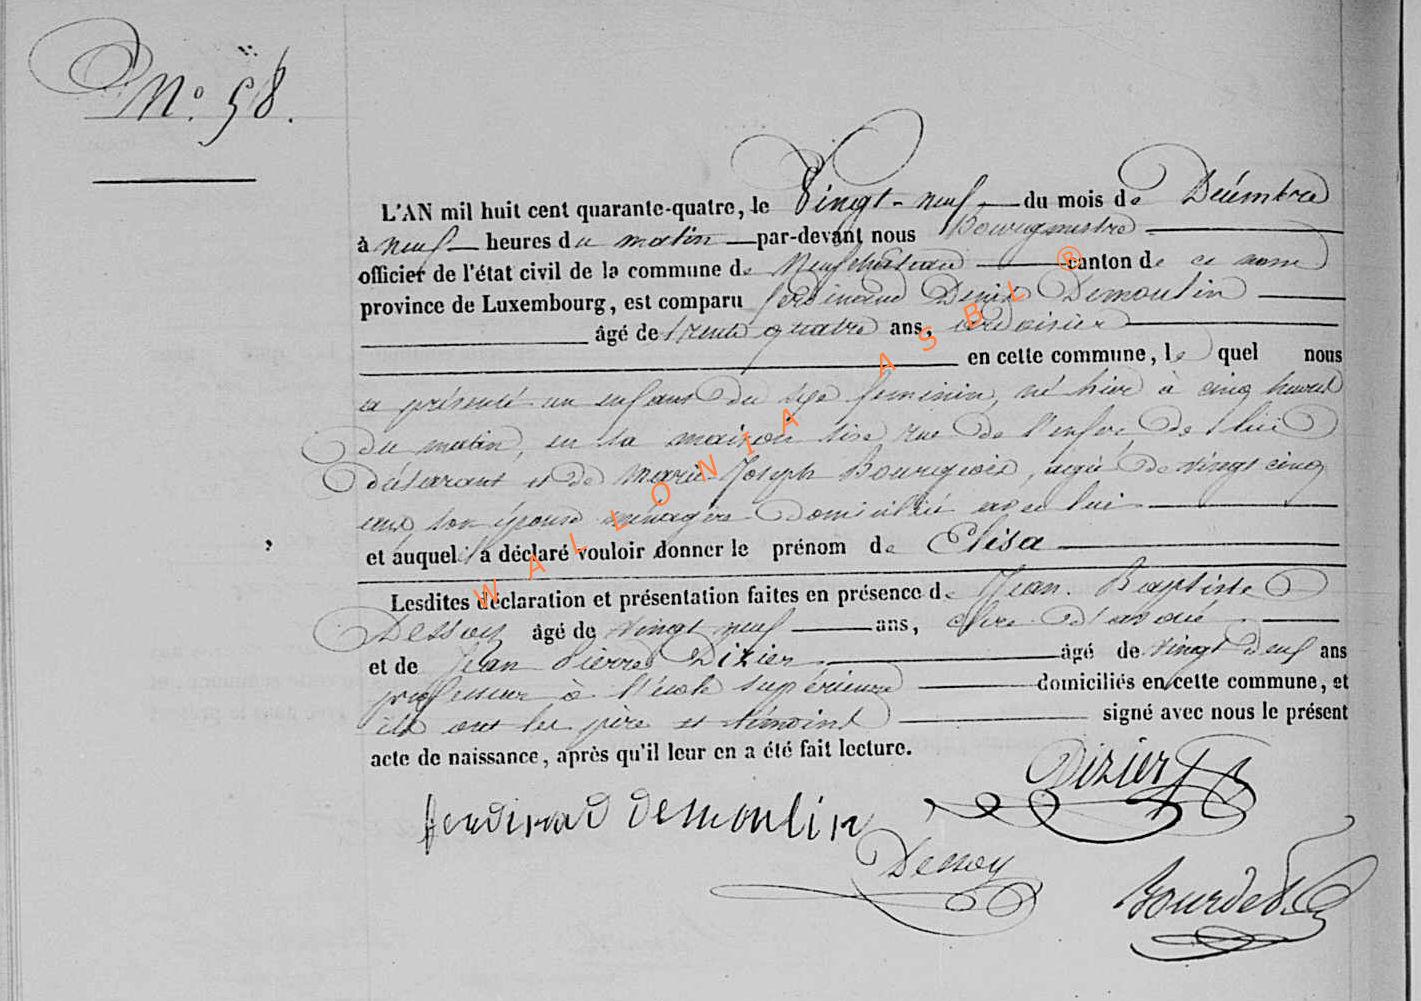 N.o 58.
L'AN mil huit cent quarante-quatre, le Vingt-neuf du mois de Décembre
à neuf heures du matin par-devant nous Bourgmestre
officier de l'état civil de la commune de Neufchateau canton de ce nom
province de Luxembourg, est comparu ferdinand Denis Demoulin
âgé de trente quatre ans, ardoisier
en cette commune, le quel nous
a présenté un enfant du sexe feminin, né hier à cinq heures
du matin, en sa maison sise rue de l'enfer, de lui
déclarant et de Marie Joseph Bourgeois, agée de vingt cinq
ans son épouse ménagère domiciliée avec lui
et auquel il a déclaré vouloir donner le prénom de Elisa
Lesdites déclaration et présentation faites en présence de Jean Baptiste
Dessoy âgé de vingt neuf ans, clerc d'avoué
et de Jean Pierre Dizier âgé de vingt neuf ans
professeur à l'école supérieure domiciliés en cette commune, et
ils ont les père et témoins signé avec nous le présent
acte de naissance, après qu'il leur en a été fait lecture.
Dizier
ferdinad demoulin
Dessoy
WALLONIA ASBL ®